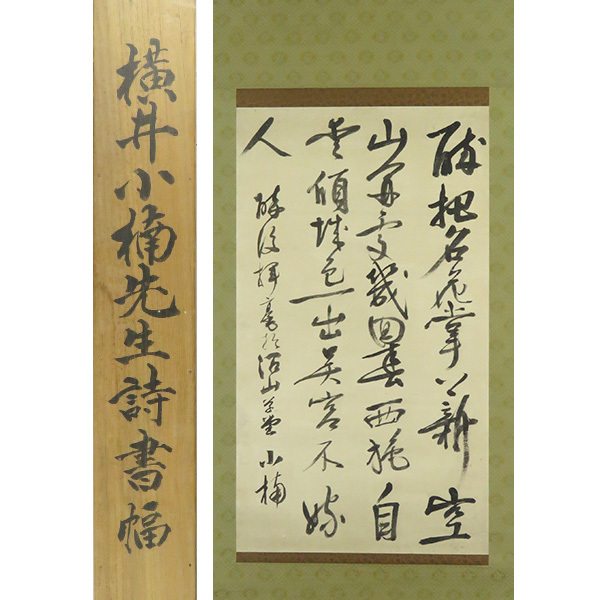 横井小楠先生詩書幅
醉把名花掌上新空
山開處幾回春西施自
愛傾城色一出吳宮不嫁
人
醉後揮毫於沼山草堂 小楠